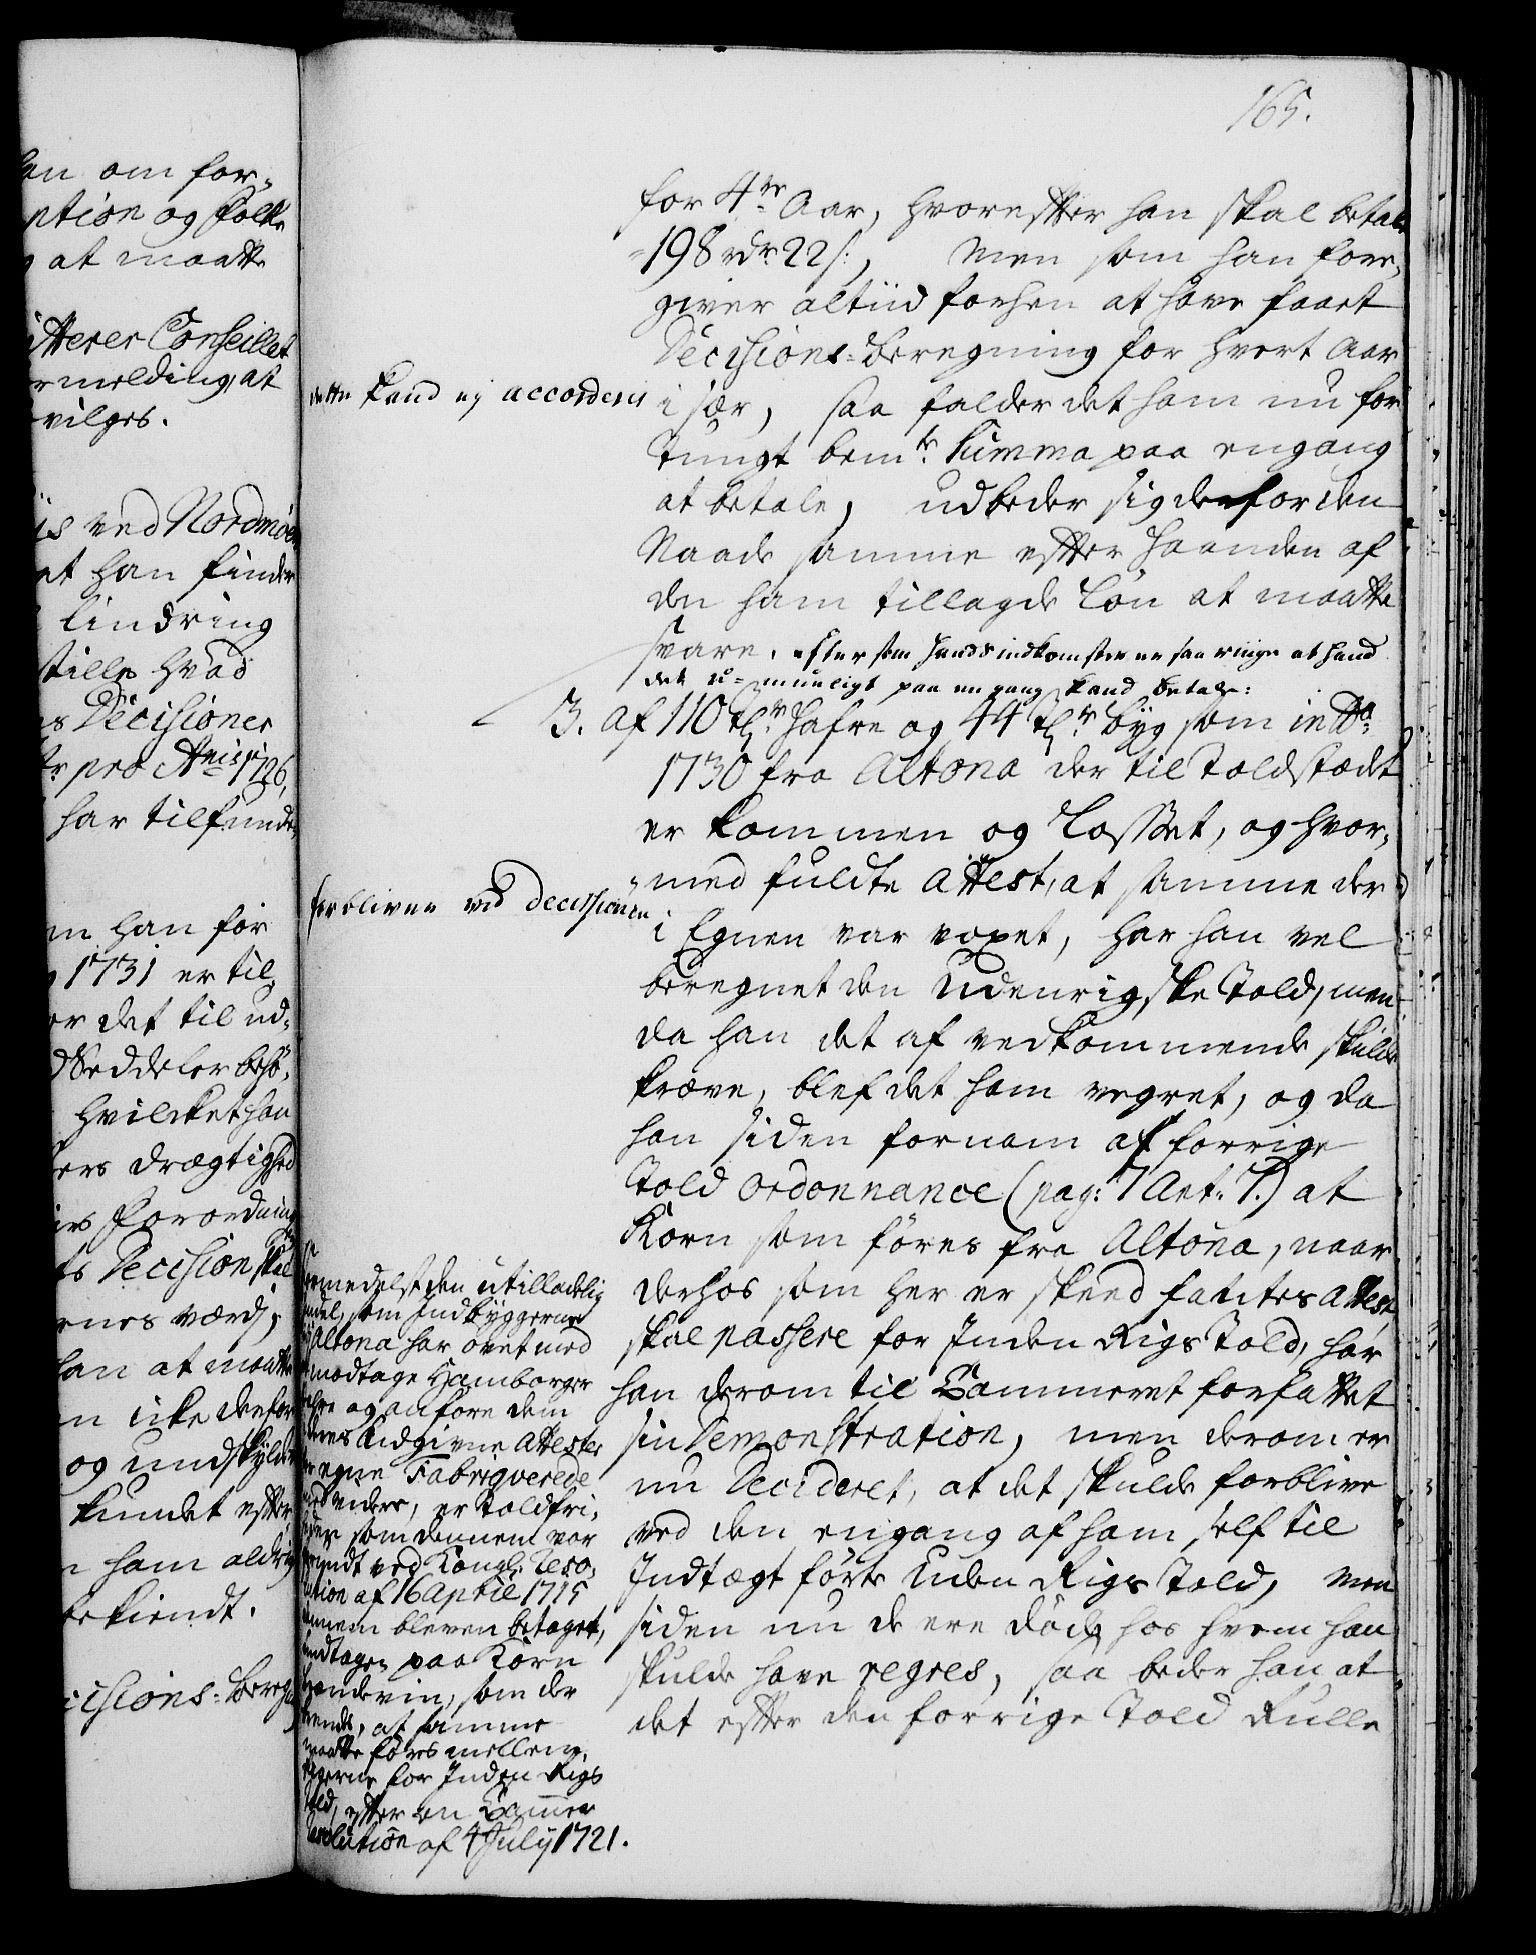 165.
en om for-
ption og Folke
at maatte
itterer Conseillet
rmelding, at
vilges.
is ved Nordmøer
at han finder
lindring
stille hvad
s Decisioner
pro Anis 1726,
har tilfunde
en han for
1731 er til
er det til ud-
Seddeler behø-
hvilcket han
ers drægtighed
Forordning
ts Decision skal
ernes værdj,
han at maatte
n icke derfor
og undskylder
kundet efter
n ham aldrig
bekiendt.
cisions-Bereg
for 4re Aar, hvorefter han skal betale
198 rdr 22 s:, men som han fore-
giver altiid forhen at have faaet
Decisions-Beregning for hvert Aar
i sær, saa falder det ham nu for
tungt bemte Summa paa engang
at betale, udbeder sig derfor den
Naade samme efter haanden af
den ham tillagde Løn at maatte
svare. eftersom hands indkomster er saa ringe at hand
det u-mueligt paa en gang kand betale:
3. Af 110 Tdr Hafre og 44 Tdr Byg som in Ao
1730 fra Altona der til Toldstædet
er kommen og Losset, og hvor-
med fuldte Attest, at samme der
i Egnen var voxet, har han vel
beregnet den Udenrigske Told, men
da han det af vedkommende skulde
kræve, blef det ham vegret, og da
han siden fornam af forrige
Told Ordonnance (pag: 7 Art: 7.) at
Korn som føres fra Altona, naar
derhos som her er skeed fantes Attest,
skal passere for Inden Rigs Told, har
han derom til Cammeret forfattet
sin Demonstration, men derom er
nu Decideret, at det skulde forblive
ved den engang af ham self til
Indtægt førte Uden Rigs Told, men
siden nu de ere døde hos hvem han
skulde have regres, saa beder han at
det efter den forrige Told Rulle
dette kand ej accorderis
forbliver ved decisionen
formedelst den utilladelig
handel, som Indbyggerne
i Altona har øvet med
at modtage Hamborger
og anføre dem
deres Udgivne Attester
for egne Fabriqverede
videre, er Toldfri-
heder som dennem var
forundt ved Kongl: Reso-
lution af 16 April 1715
dennem bleven betaget,
undtagen paa Korn
Brendeviin, som der
brendes, at samme
maatte føres mellem
Rigerne for Inden Rigs
Told, efter en Cammer
Resolution af 4 July 1721.